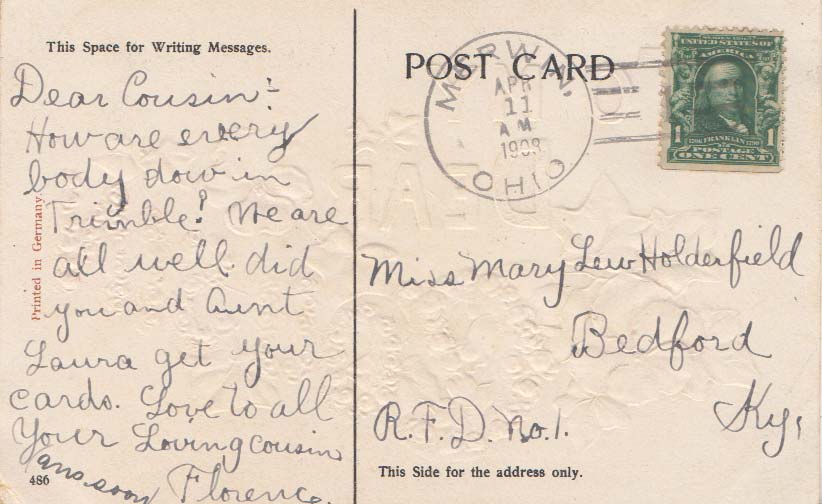 This Space for Writing Messages.
Dear Cousin:-
How are every
body dow in
Trimble? We are
all well. did
you and Aunt
Laura get your
cards. Love to all
Your Loving cousin
ans. soon Florence.
Printed in Germany.
486
POST CARD
MERWIN,
APR
11
AM
1908
OHIO
SERIES 1902
UNITED STATES OF
AMERICA
1 1706 FRANKLIN 1790 1
POSTAGE
ONE CENT
Miss Mary Lew Holderfield
Bedford
Ky,
R.F.D. No. 1.
This Side for the address only.